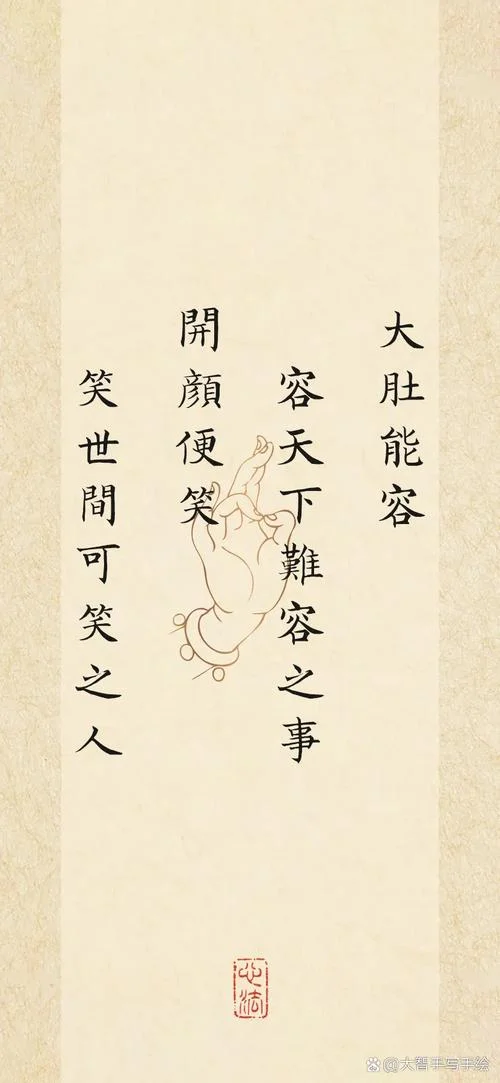 大肚能容
容天下難容之事
開顏便笑
笑世間可笑之人
心法
@大智手写手绘